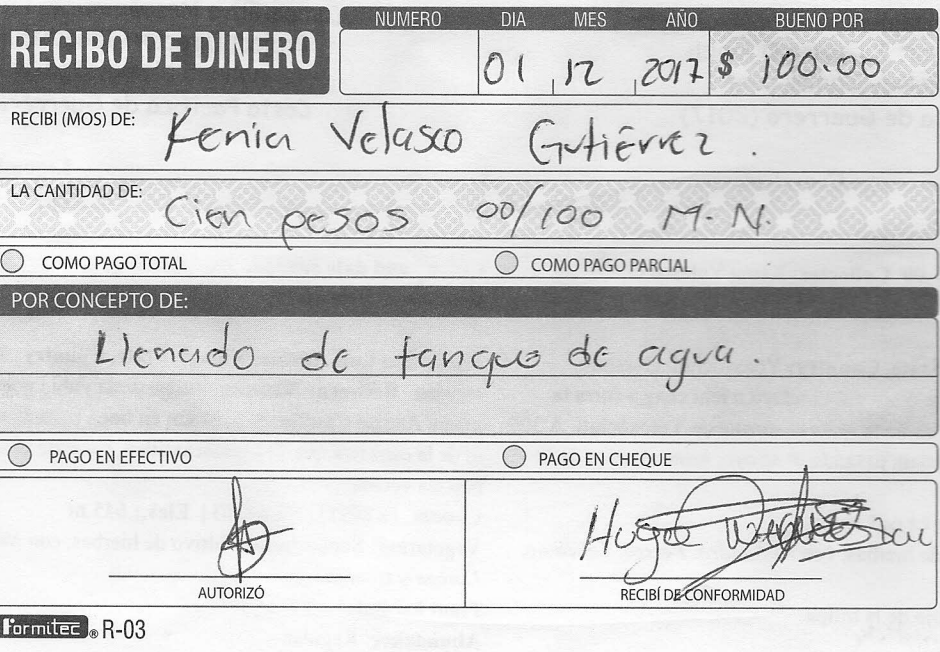 RECIBO DE DINERO
NUMERO DIA MES AÑO BUENO POR
01 12 2017 $ 100.00
RECIBI (MOS) DE: Kenia Velasco Gutiérrez.
LA CANTIDAD DE: Cien pesos 00/100 M.N.
COMO PAGO TOTAL COMO PAGO PARCIAL
POR CONCEPTO DE:
Llenado de tanque de agua.
PAGO EN EFECTIVO PAGO EN CHEQUE
Hugo
AUTORIZÓ RECIBÍ DE CONFORMIDAD
Formitec ® R-03